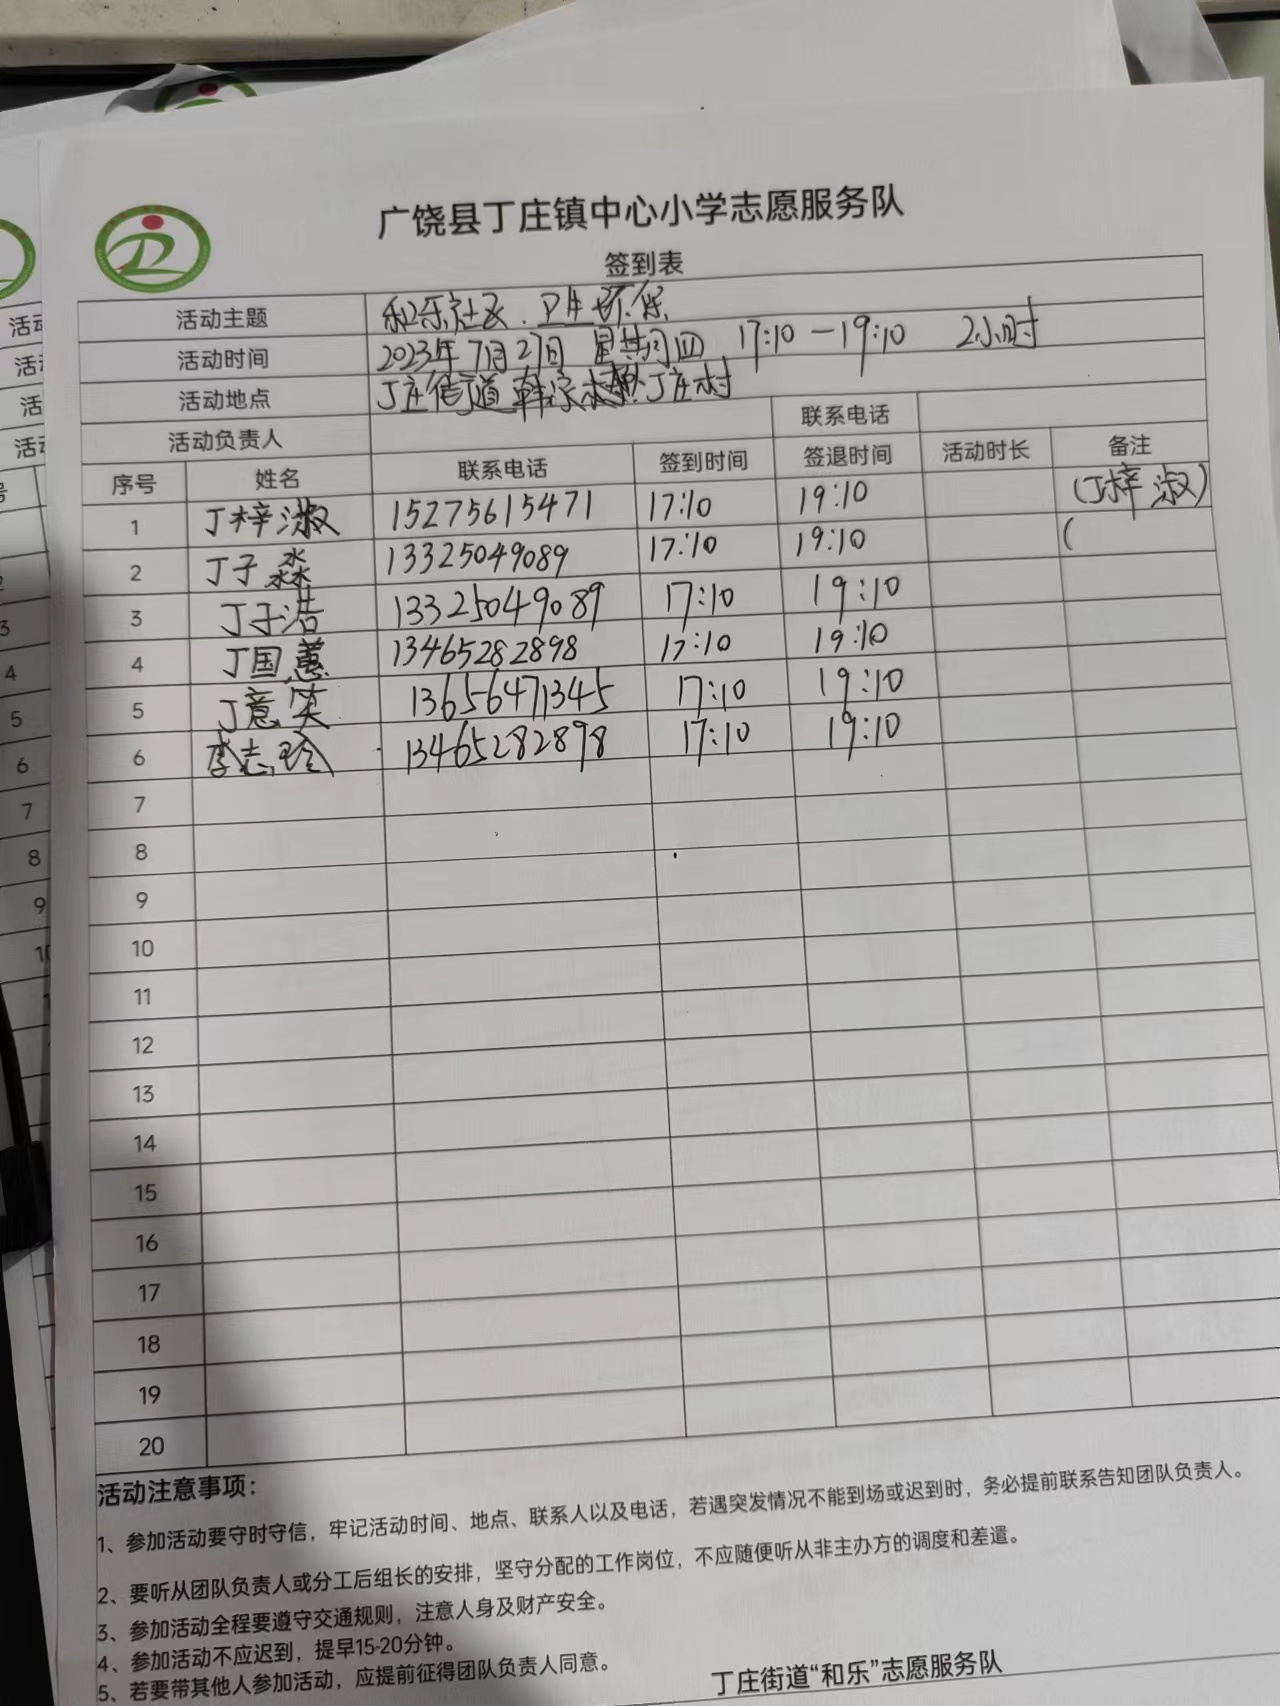 广饶县丁庄镇中心小学志愿服务队
签到表
活动主题 和乐社区.卫生环保
活动时间 2023年7月27日 星期四 17:10-19:10 2小时
活动地点 丁庄街道韩家村 丁庄村
活动负责人 联系电话
序号 姓名 联系电话 签到时间 签退时间 活动时长 备注
1 丁梓淑 15275615471 17:10 19:10 (丁梓淑)
2 丁子淼 13325049089 17:10 19:10 (
3 丁子浩 13325049089 17:10 19:10
4 丁国蕙 13465282898 17:10 19:10
5 丁意笑 13656471345 17:10 19:10
6 李志玲 13465282898 17:10 19:10
7
8
9
10
11
12
13
14
15
16
17
18
19
20
活动注意事项：
1、参加活动要守时守信，牢记活动时间、地点、联系人以及电话，若遇突发情况不能到场或迟到时，务必提前联系告知团队负责人。
2、要听从团队负责人或分工后组长的安排，坚守分配的工作岗位，不应随便听从非主办方的调度和差遣。
3、参加活动全程要遵守交通规则，注意人身及财产安全。
4、参加活动不应迟到，提早15-20分钟。
5、若要带其他人参加活动，应提前征得团队负责人同意。
丁庄街道“和乐”志愿服务队